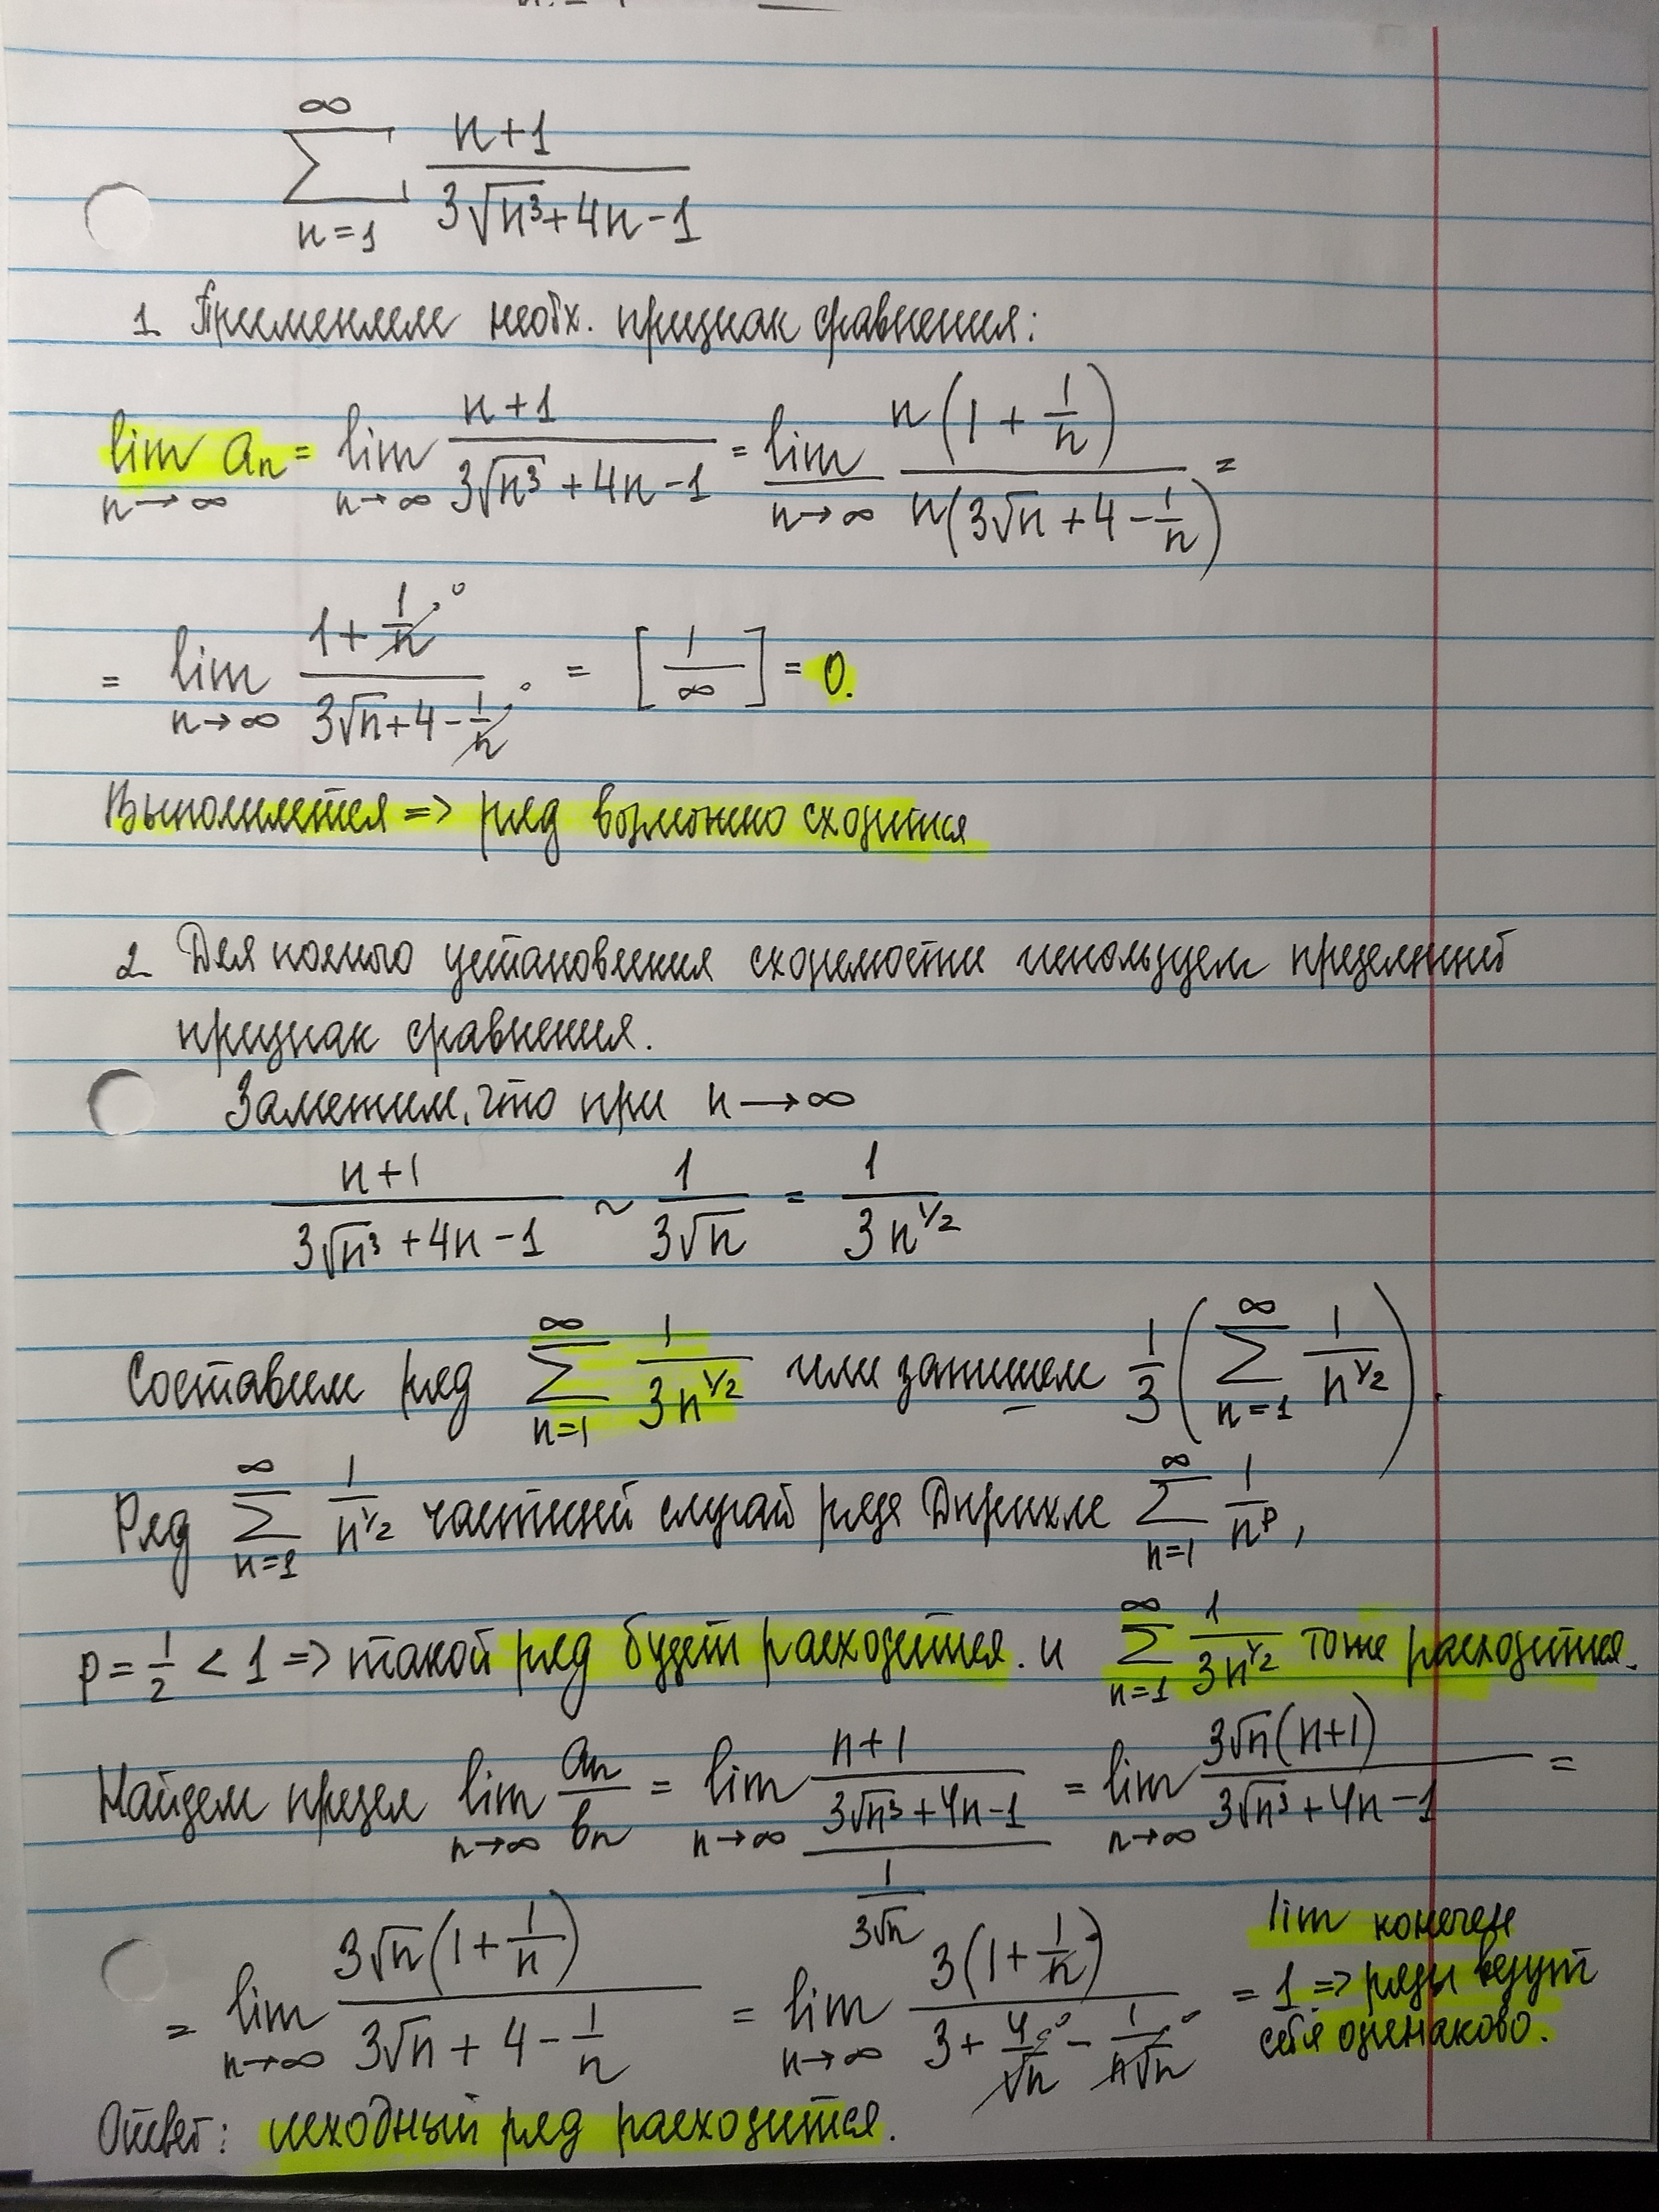 ∞ Σ n=1 (n+1)/(3√n³+4n-1)
1. Применяем необх. признак сравнения:
lim n→∞ aₙ = lim n→∞ (n+1)/(3√n³+4n-1) = lim n→∞ n(1+1/n)/n(3√n+4-1/n) =
= lim n→∞ (1+1/n)/(3√n+4-1/n) = [1/∞] = 0.
Выполняется => ряд возможно сходится
2. Для полного установления сходимости используем предельный
признак сравнения.
Заметим, что при n→∞
(n+1)/(3√n³+4n-1) ~ 1/(3√n) = 1/(3n^1/2)
Составим ряд ∞ Σ n=1 1/(3n^1/2) или запишем 1/3(∞ Σ n=1 1/n^1/2).
Ряд ∞ Σ n=1 1/n^1/2 частный случай ряда Дирихле ∞ Σ n=1 1/n^p,
p=1/2<1 => такой ряд будет расходится. и ∞ Σ n=1 1/(3n^1/2) тоже расходится.
Найдем предел lim n→∞ aₙ/bₙ = lim n→∞ ((n+1)/(3√n³+4n-1))/(1/(3√n)) = lim n→∞ 3√n(n+1)/(3√n³+4n-1) =
= lim n→∞ 3√n(1+1/n)/(3√n+4-1/n) = lim n→∞ 3(1+1/n)/(3+4/√n-1/(n√n)) = 1 => ряды ведут
lim конечен
себя одинаково.
Ответ: исходный ряд расходится.